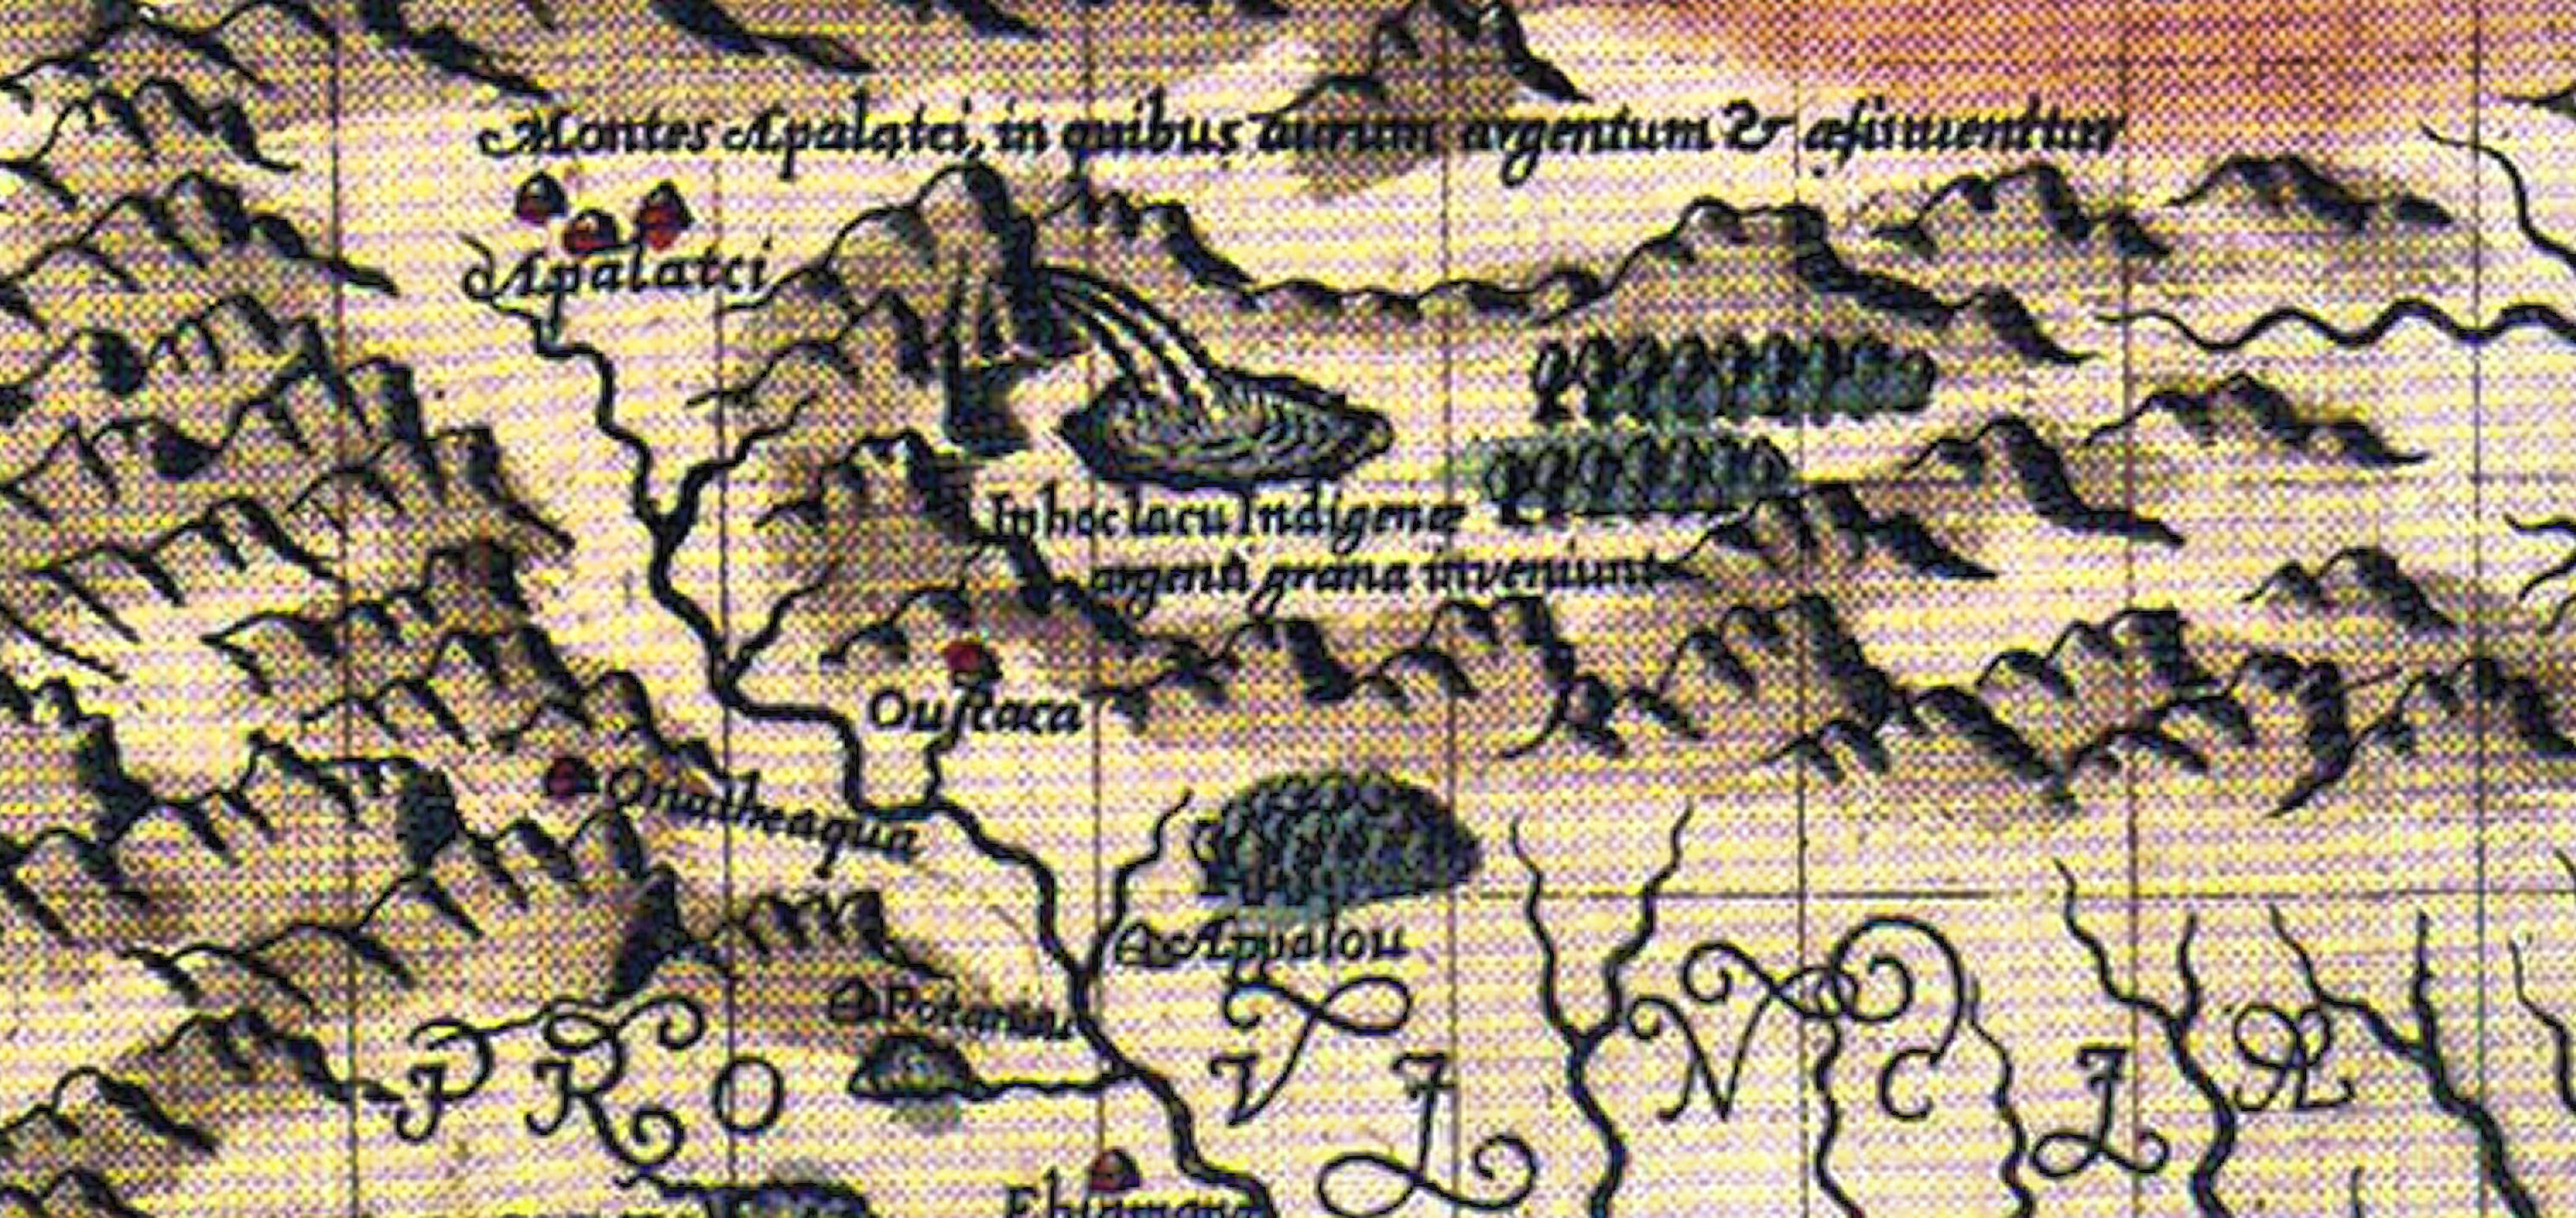 Montes Apalatci, in quibus aurum argentum & æs inuenitur
Apalatci
In hoc lacu Indigenæ
argenti grana inveniunt
Oustaca
Onatheaqua
Appalou
Potanou
PROVINCIÆ